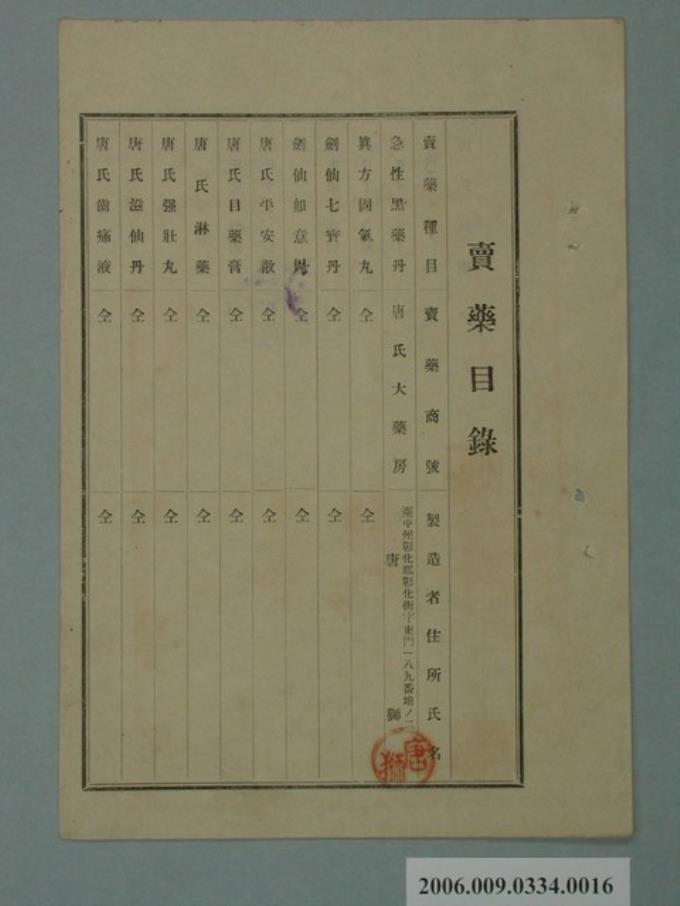 賣藥目錄
賣藥種目 賣藥商號 製造者住所氏名
急性黑藥丹 唐氏大藥房 臺中州彰化郡彰化街字東門一八九番地ノ二 唐 獅
異方固氣丸 仝 仝
劍仙七寶丹 仝 仝
劍仙如意 仝 仝
唐氏平安散 仝 仝
唐氏目藥膏 仝 仝
唐氏淋藥 仝 仝
唐氏强壯丸 仝 仝
唐氏滋仙丹 仝 仝
唐氏齒痛液 仝 仝
唐獅
2006.009.0334.0016